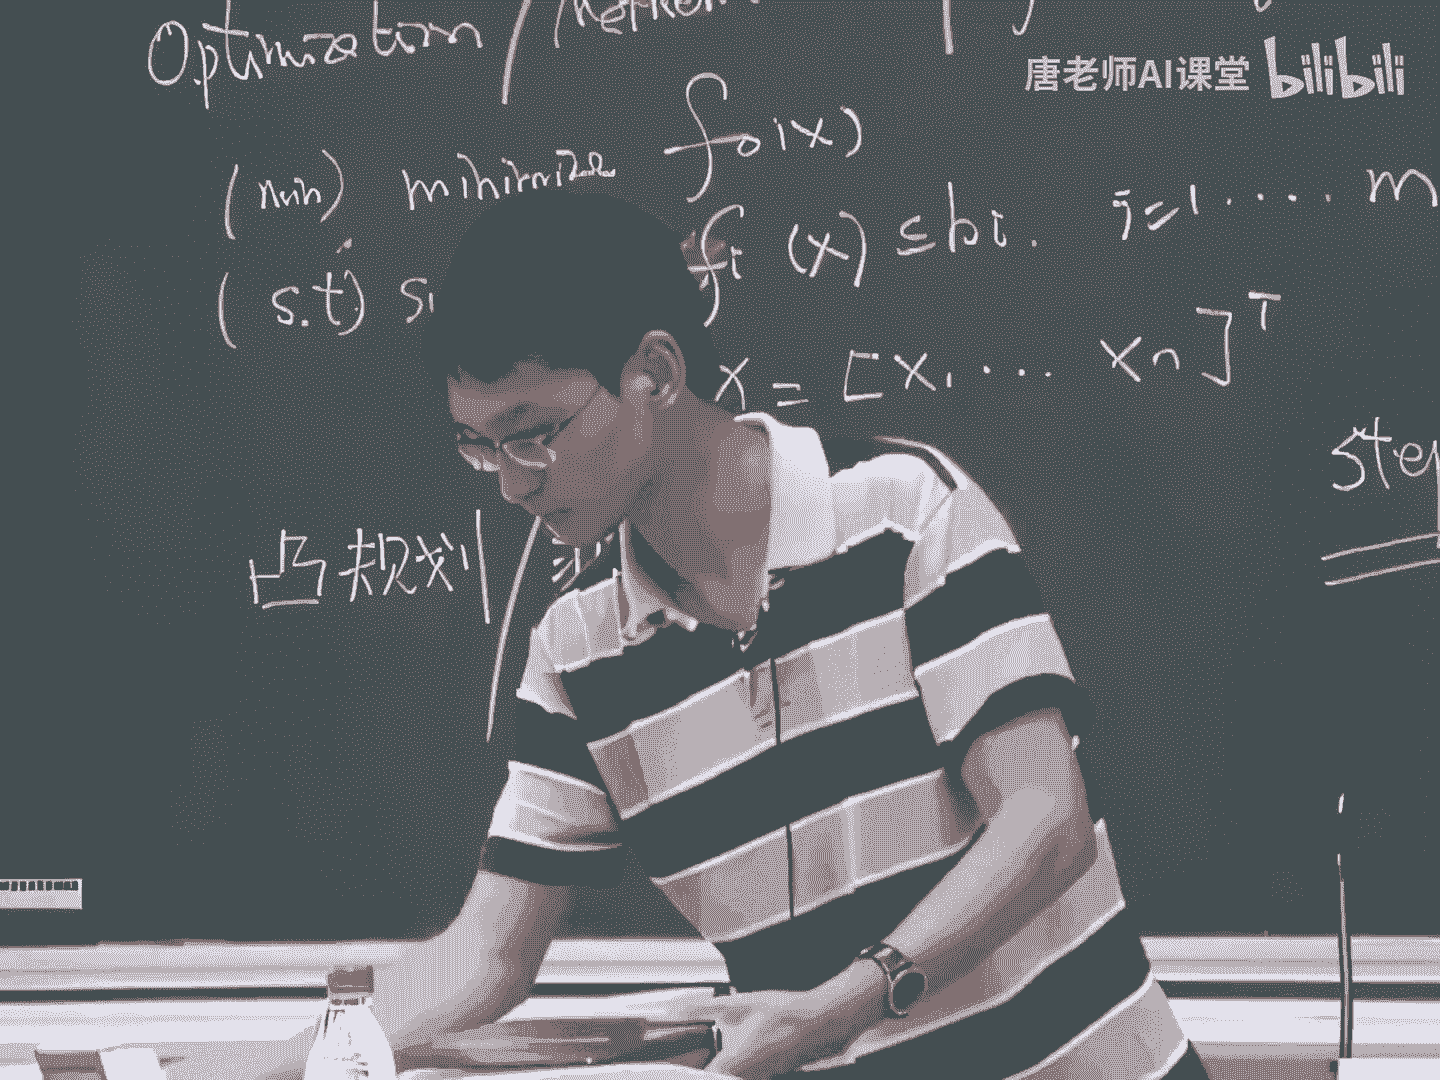 Optimization /
唐老师AI课堂 bilibili
(min) minimize f₀(x)
(s.t) fi (x) ≤ bi. i=1 ···· m
x = [x₁ ... xn]ᵀ
凸规划